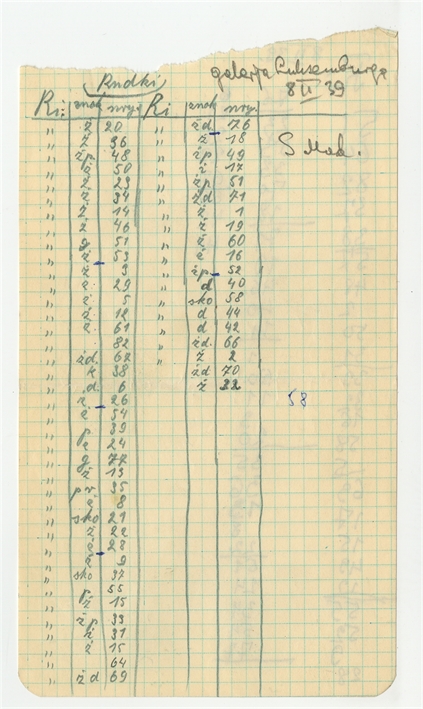 Rudki
galerja Luksemburga
8 II 39
S Mak.
Ri: znak nryj
" ż 20
" ż 36
" żp 48
" ż 50
" ż 23
" ż 34
" ż 14
" ż 46
" g 51
" ż 53
" ż 3
" ż 29
" ż 5
" ż 12
" ż 61
" 82
" żd. 62
" k 38
" d. 6
" ż 26
" ż 54
" p 39
" 24
" g 77
" ż 13
" pr. 35
" ż 8
" sko 21
" ż 22
" ż 28
" ż 9
" sko 37
" 55
" ż 15
" żp 33
" ż 31
" ż 15
" 64
" żd 69
Ri znak nryj
" żd 76
" ż 18
" żp 49
" ż 17
" żp 51
" żd 71
" ż 1
" ż 19
" ż 60
" ż 16
" żp 52
" d 40
" sko 58
" d 44
" d 42
" żd. 66
" ż 2
żd 70
ż 22
58